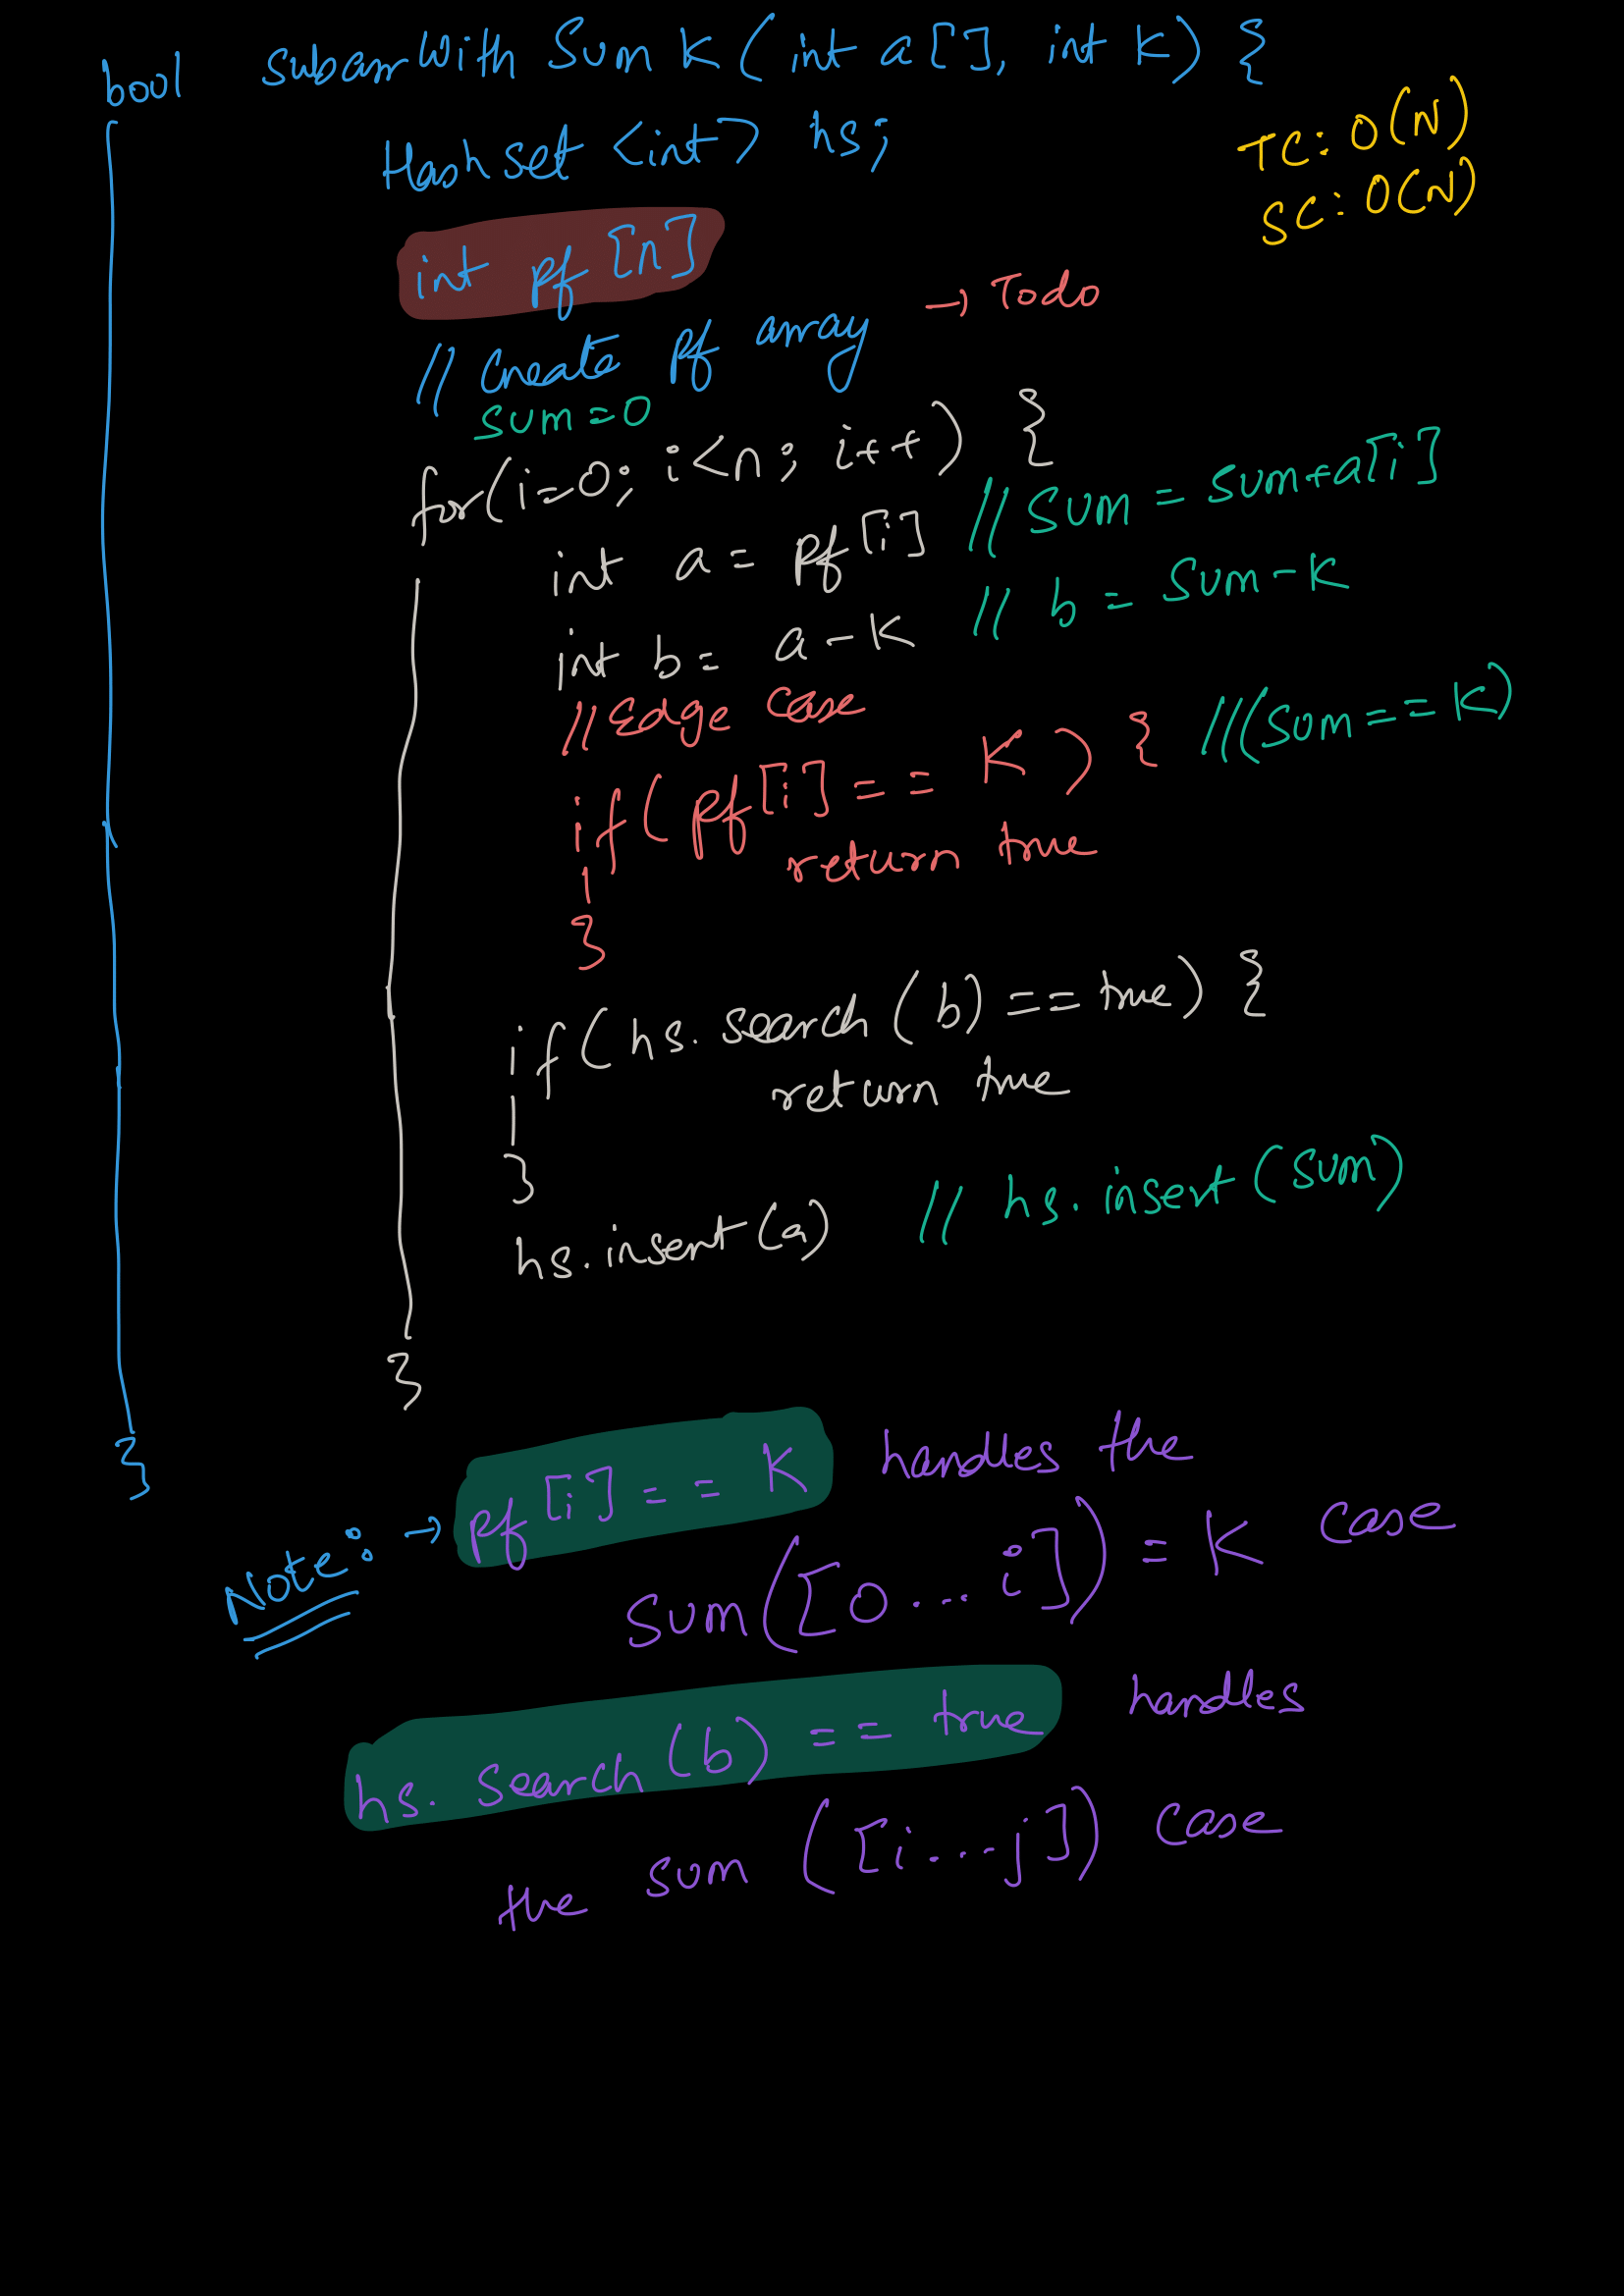 bool subarrWith Sum K (int a[], int K) {
Hashset <int> hs;
TC: O(N)
SC: O(N)
int pf [n]
// Create pf array → Todo
sum=0
for(i=0; i<n; i++) {
int a = pf[i] // Sum = sum+a[i]
int b = a-K // b = Sum-K
//Edge Case
if( pf[i] == K ) { //(Sum == K)
return true
}
if( hs. search (b) == true) {
return true
}
hs.insert(a) // hs.insert(sum)
}
}
Note: → pf[i] == K handles the
Sum([0...i]) = K case
hs. search (b) == true handles
the sum ([i...j]) case